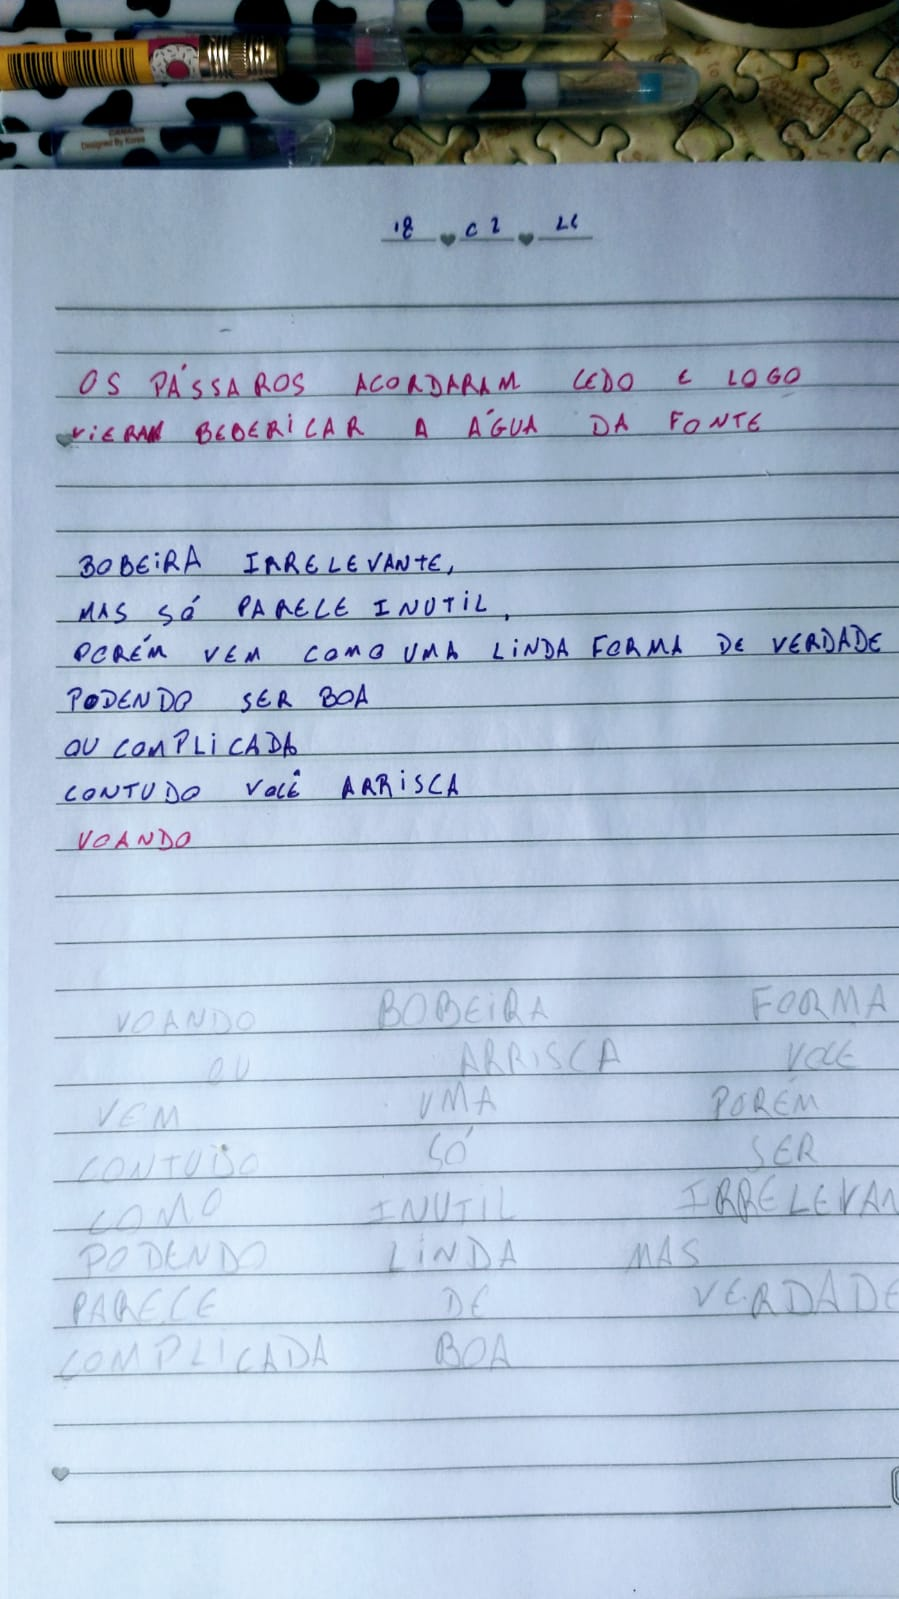 Designed By Korea
18 02 26
OS PÁSSAROS ACORDARAM CEDO E LOGO
VIERAM BEBERICAR A ÁGUA DA FONTE
BOBEIRA IRRELEVANTE,
MAS SÓ PARECE INUTIL,
PORÉM VEM COMO UMA LINDA FORMA DE VERDADE
PODENDO SER BOA
OU COMPLICADA
CONTUDO VOCÊ ARRISCA
VOANDO
VOANDO BOBEIRA FORMA
OU ARRISCA VOCÊ
VEM UMA PORÉM
CONTUDO SÓ SER
COMO INUTIL IRRELEVAN
PODENDO LINDA MAS
PARECE DE VERDADE
COMPLICADA BOA